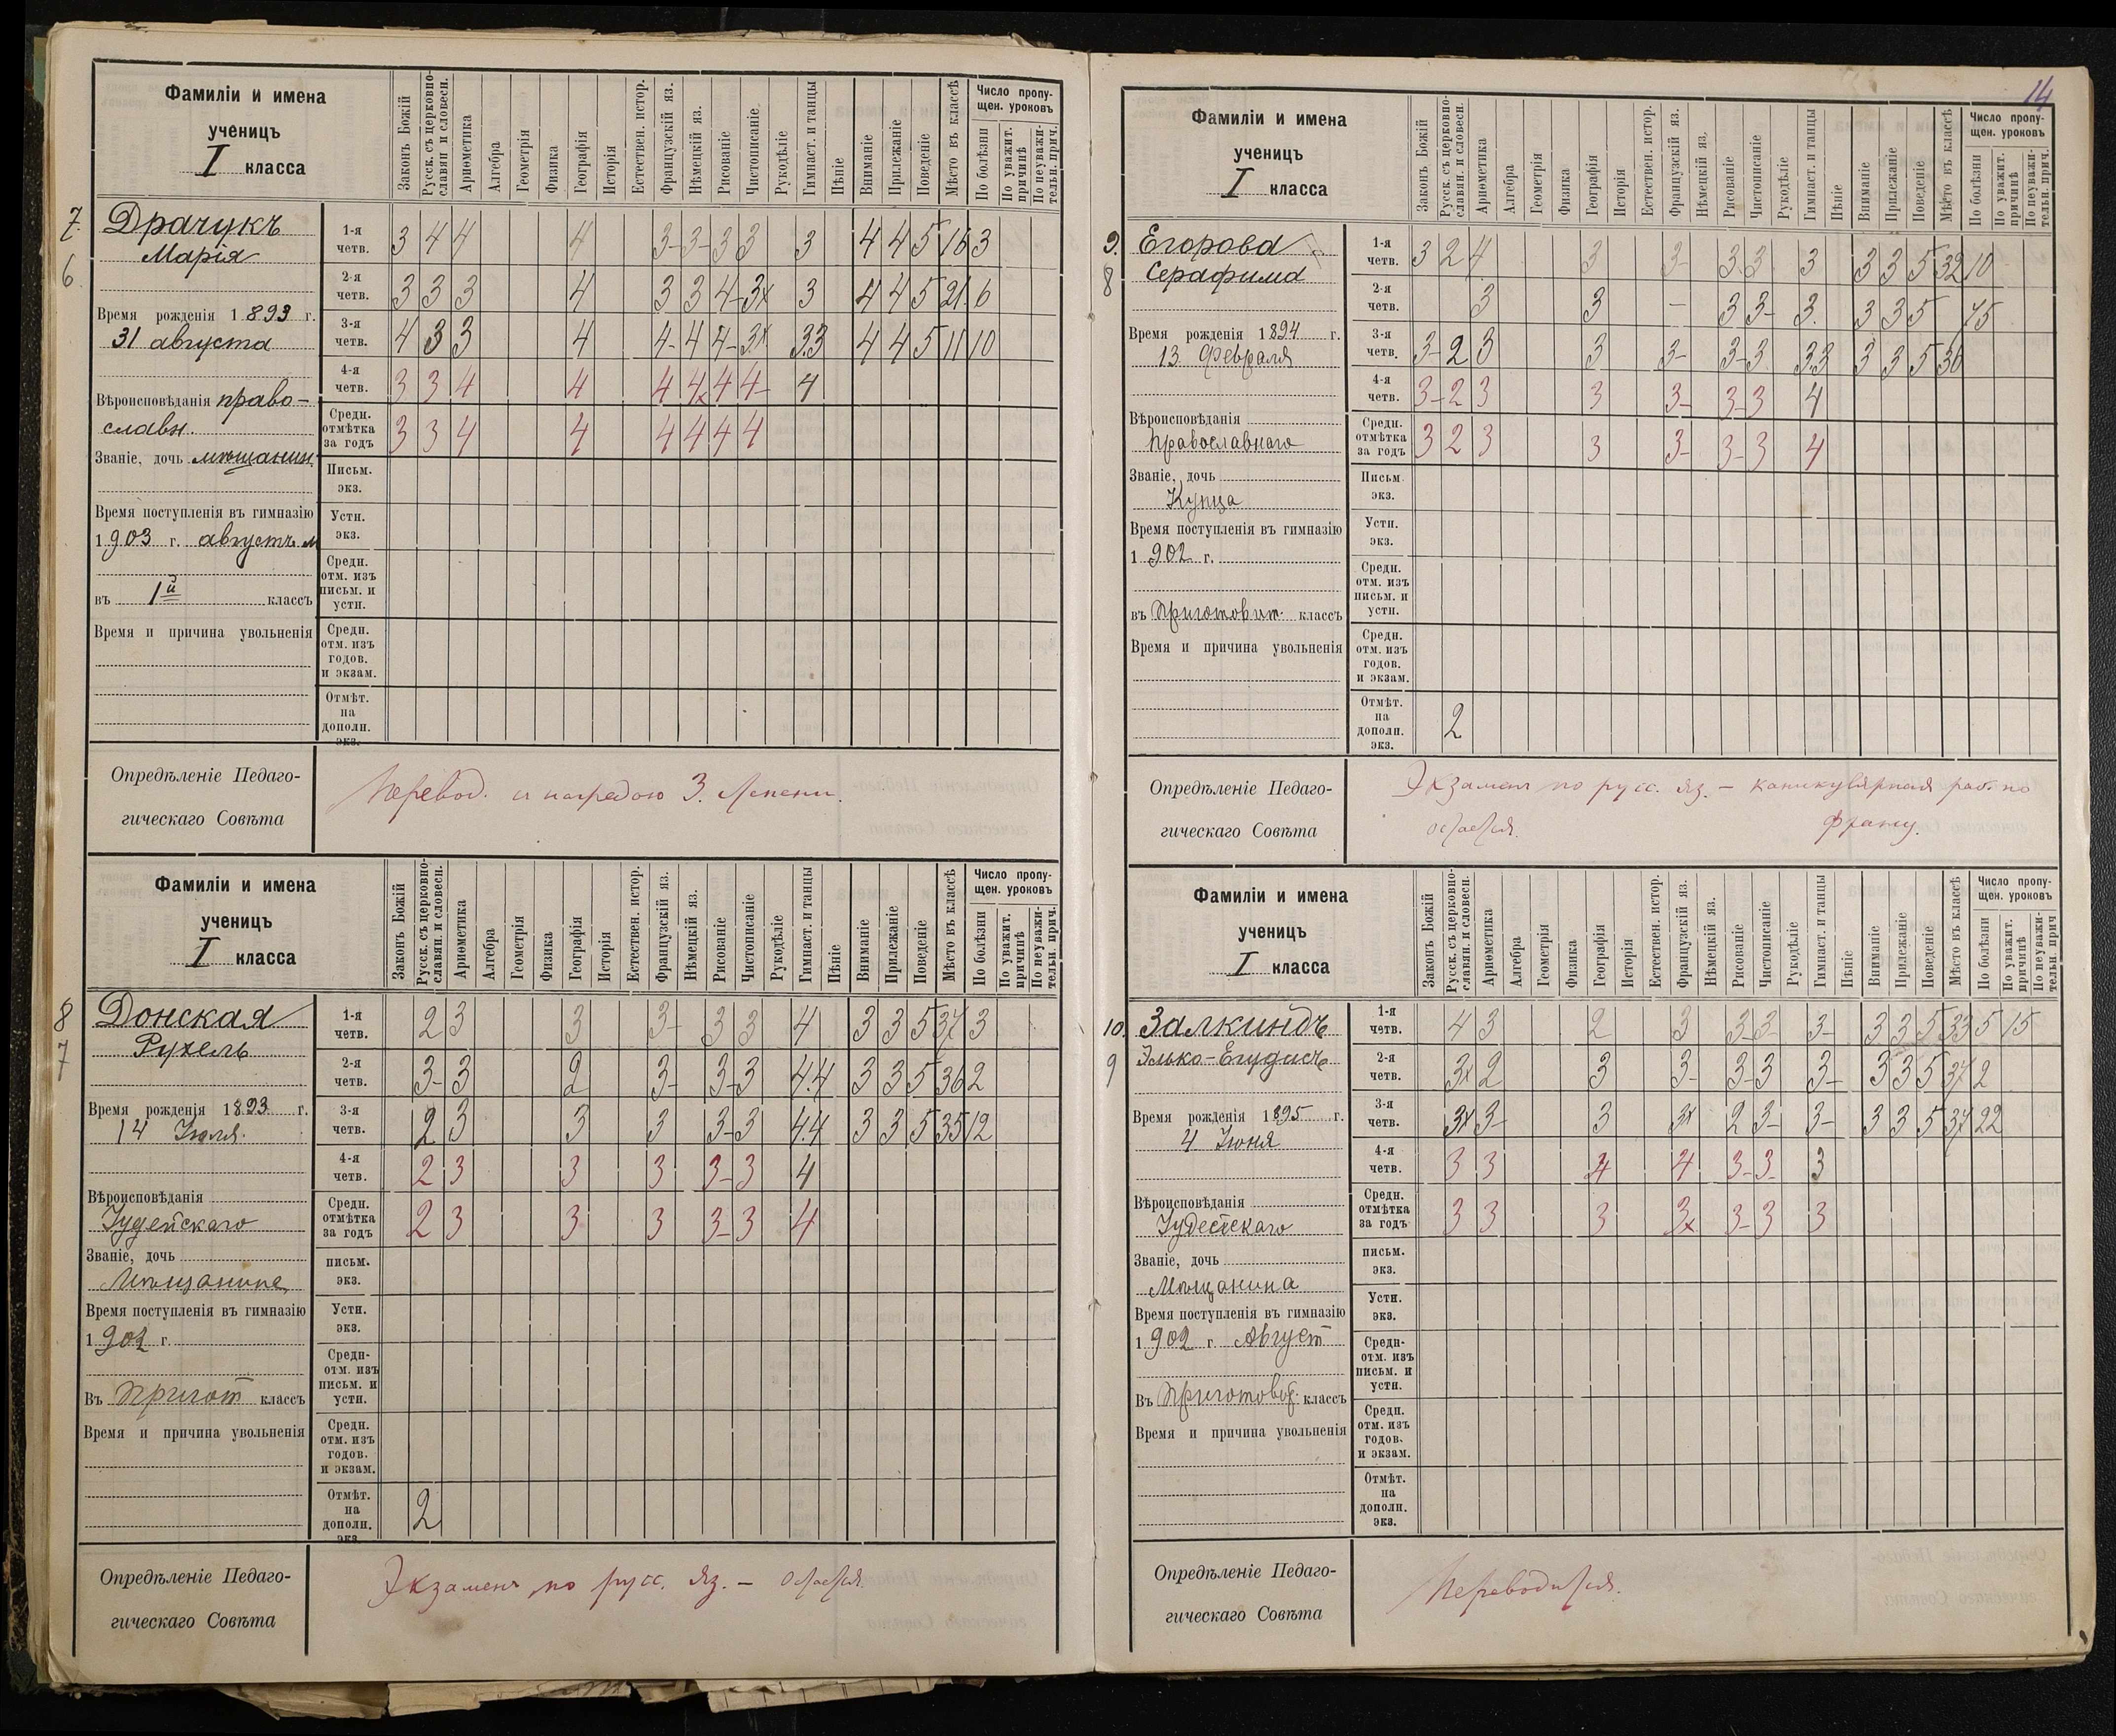 14
Фамиліи и имена
ученицъ
I класса
Законъ Божій
Русск. съ церковно-
славян. и словесн.
Ариѳметика
Алгебра
Геометрія
Физика
Географія
Исторія
Естествен. истор.
Французскій яз.
Нѣмецкій яз.
Рисованіе
Чистописаніе
Рукодѣліе
Гимнаст. и танцы
Пѣніе
Вниманіе
Прилежаніе
Поведеніе
Мѣсто въ классѣ
Число пропу-
щен. уроковъ
По болѣзни
По уважит.
причинѣ
По неуважи-
тельн. прич.
7.
6
Драчукъ
Марія
Время рожденія 1893 г.
31 августа
Вѣроисповѣданія право-
славн.
Званіе, дочь мѣщанин.
Время поступленія въ гимназію
1903 г. августъ м
въ 1й классъ
Время и причина увольненія
1-я четв. 3 4 4 4 3- 3- 3 3 3 4 4 5 16 3
2-я четв. 3 3 3 4 3 3 4- 3х 3 4 4 5 21. 6
3-я четв. 4 3 3 4 4- 4 4- 3х 3.3 4 4 5 11 10
4-я четв. 3 3 4 4 4 4х 4 4- 4
Средн. отмѣтка за годъ 3 3 4 4 4 4 4 4
Письм. экз.
Устн. экз.
Средн. отм. изъ письм. и устн.
Средн. отм. изъ годов. и экзам.
Отмѣт. на дополн. экз.
Опредѣленіе Педаго-
гическаго Совѣта
Перевод. с наградою 3. степени.
Фамиліи и имена
ученицъ
I класса
Законъ Божій
Русск. съ церковно-
славян. и словесн.
Ариѳметика
Алгебра
Геометрія
Физика
Географія
Исторія
Естествен. истор.
Французскій яз.
Нѣмецкій яз.
Рисованіе
Чистописаніе
Рукодѣліе
Гимнаст. и танцы
Пѣніе
Вниманіе
Прилежаніе
Поведеніе
Мѣсто въ классѣ
Число пропу-
щен. уроковъ
По болѣзни
По уважит.
причинѣ
По неуважи-
тельн. прич.
8
7
Донская
Рухель
Время рожденія 1893 г.
14 Іюля.
Вѣроисповѣданія
Іудейскаго
Званіе, дочь
Мѣщанина
Время поступленія въ гимназію
1902 г.
Въ Пригот классъ
Время и причина увольненія
1-я четв. 2 3 3 3- 3 3 4 3 3 5 37 3
2-я четв. 3- 3 2 3- 3- 3 4.4 3 3 5 36 2
3-я четв. 2 3 3 3 3- 3 4.4 3 3 5 35 12
4-я четв. 2 3 3 3 3- 3 4
Средн. отмѣтка за годъ 2 3 3 3 3- 3 4
письм. экз.
Устн. экз.
Средн- отм. изъ письм. и устн.
Средн. отм. изъ годов. и экзам.
Отмѣт. на дополн. экз. 2
Опредѣленіе Педаго-
гическаго Совѣта
Экзаменъ по русс. яз. - остается.
Фамиліи и имена
ученицъ
I класса
Законъ Божій
Русск. съ церковно-
славян. и словесн.
Ариѳметика
Алгебра
Геометрія
Физика
Географія
Исторія
Естествен. истор.
Французскій яз.
Нѣмецкій яз.
Рисованіе
Чистописаніе
Рукодѣліе
Гимнаст. и танцы
Пѣніе
Вниманіе
Прилежаніе
Поведеніе
Мѣсто въ классѣ
Число пропу-
щен. уроковъ
По болѣзни
По уважит.
причинѣ
По неуважи-
тельн. прич.
9.
8
Егорова
Серафима
Время рожденія 1894 г.
13 Февраля
Вѣроисповѣданія
Православнаго
Званіе, дочь
Купца
Время поступленія въ гимназію
1902 г.
въ Приготовит. классъ
Время и причина увольненія
1-я четв. 3 2 4 3 3- 3 3 3 3 3 5 32 10
2-я четв. 3 3 - 3 3- 3. 3 3 5 75
3-я четв. 3- 2 3 3 3- 3- 3 3.3 3 3 5 36
4-я четв. 3- 2 3 3 3- 3- 3 4
Средн. отмѣтка за годъ 3 2 3 3 3- 3- 3 4
Письм. экз.
Устн. экз.
Средн. отм. изъ письм. и устн.
Средн. отм. изъ годов. и экзам.
Отмѣт. на дополн. экз. 2
Опредѣленіе Педаго-
гическаго Совѣта
Экзамен по русс. яз. - каникулярная раб. по
остается. францу.
Фамиліи и имена
ученицъ
I класса
Законъ Божій
Русск. съ церковно-
славян. и словесн.
Ариѳметика
Алгебра
Геометрія
Физика
Географія
Исторія
Естествен. истор.
Французскій яз.
Нѣмецкій яз.
Рисованіе
Чистописаніе
Рукодѣліе
Гимнаст. и танцы
Пѣніе
Вниманіе
Прилежаніе
Поведеніе
Мѣсто въ классѣ
Число пропу-
щен. уроковъ
По болѣзни
По уважит.
причинѣ
По неуважи-
тельн. прич
10.
9
Залкиндъ
Элько-Егудисъ
Время рожденія 1895 г.
4 Іюня
Вѣроисповѣданія
Іудейскаго
Званіе, дочь
Мѣщанина
Время поступленія въ гимназію
1902 г. Август
Въ Приготов. классъ
Время и причина увольненія
1-я четв. 4 3 2 3 3- 3- 3- 3 3 5 33 5 15
2-я четв. 3х 2 3 3- 3- 3 3- 3 3 5 37 2
3-я четв. 3х 3- 3 3х 2 3- 3- 3 3 5 37 22
4-я четв. 3 3 4 4 3- 3- 3
Средн. отмѣтка за годъ 3 3 3 3х 3- 3 3
письм. экз.
Устн. экз.
Средн- отм. изъ письм. и устн.
Средн. отм. изъ годов. и экзам.
Отмѣт. на дополн. экз.
Опредѣленіе Педаго-
гическаго Совѣта
Переводится.